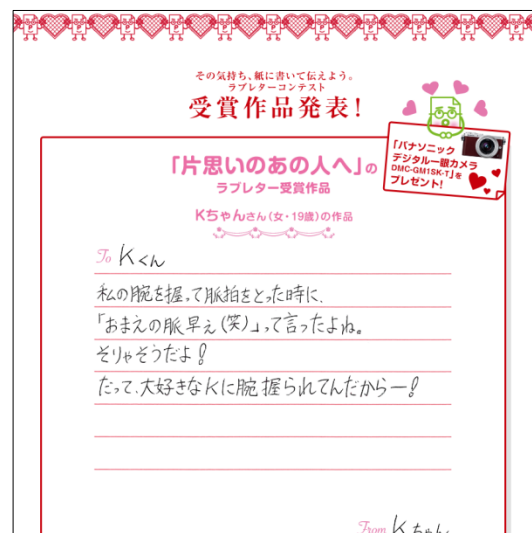 その気持ち、紙に書いて伝えよう。
ラブレターコンテスト
受賞作品発表!
「パナソニック
デジタル一眼カメラ
DMC-GM1SK-T」を
プレゼント!
「片思いのあの人へ」の
ラブレター受賞作品
Kちゃんさん(女・19歳)の作品
To Kくん
私の腕を握って脈拍をとった時に、
「おまえの脈早え(笑)」って言ったよね。
そりゃそうだよ!
だって、大好きなKに腕握られてんだからー!
From Kちゃん